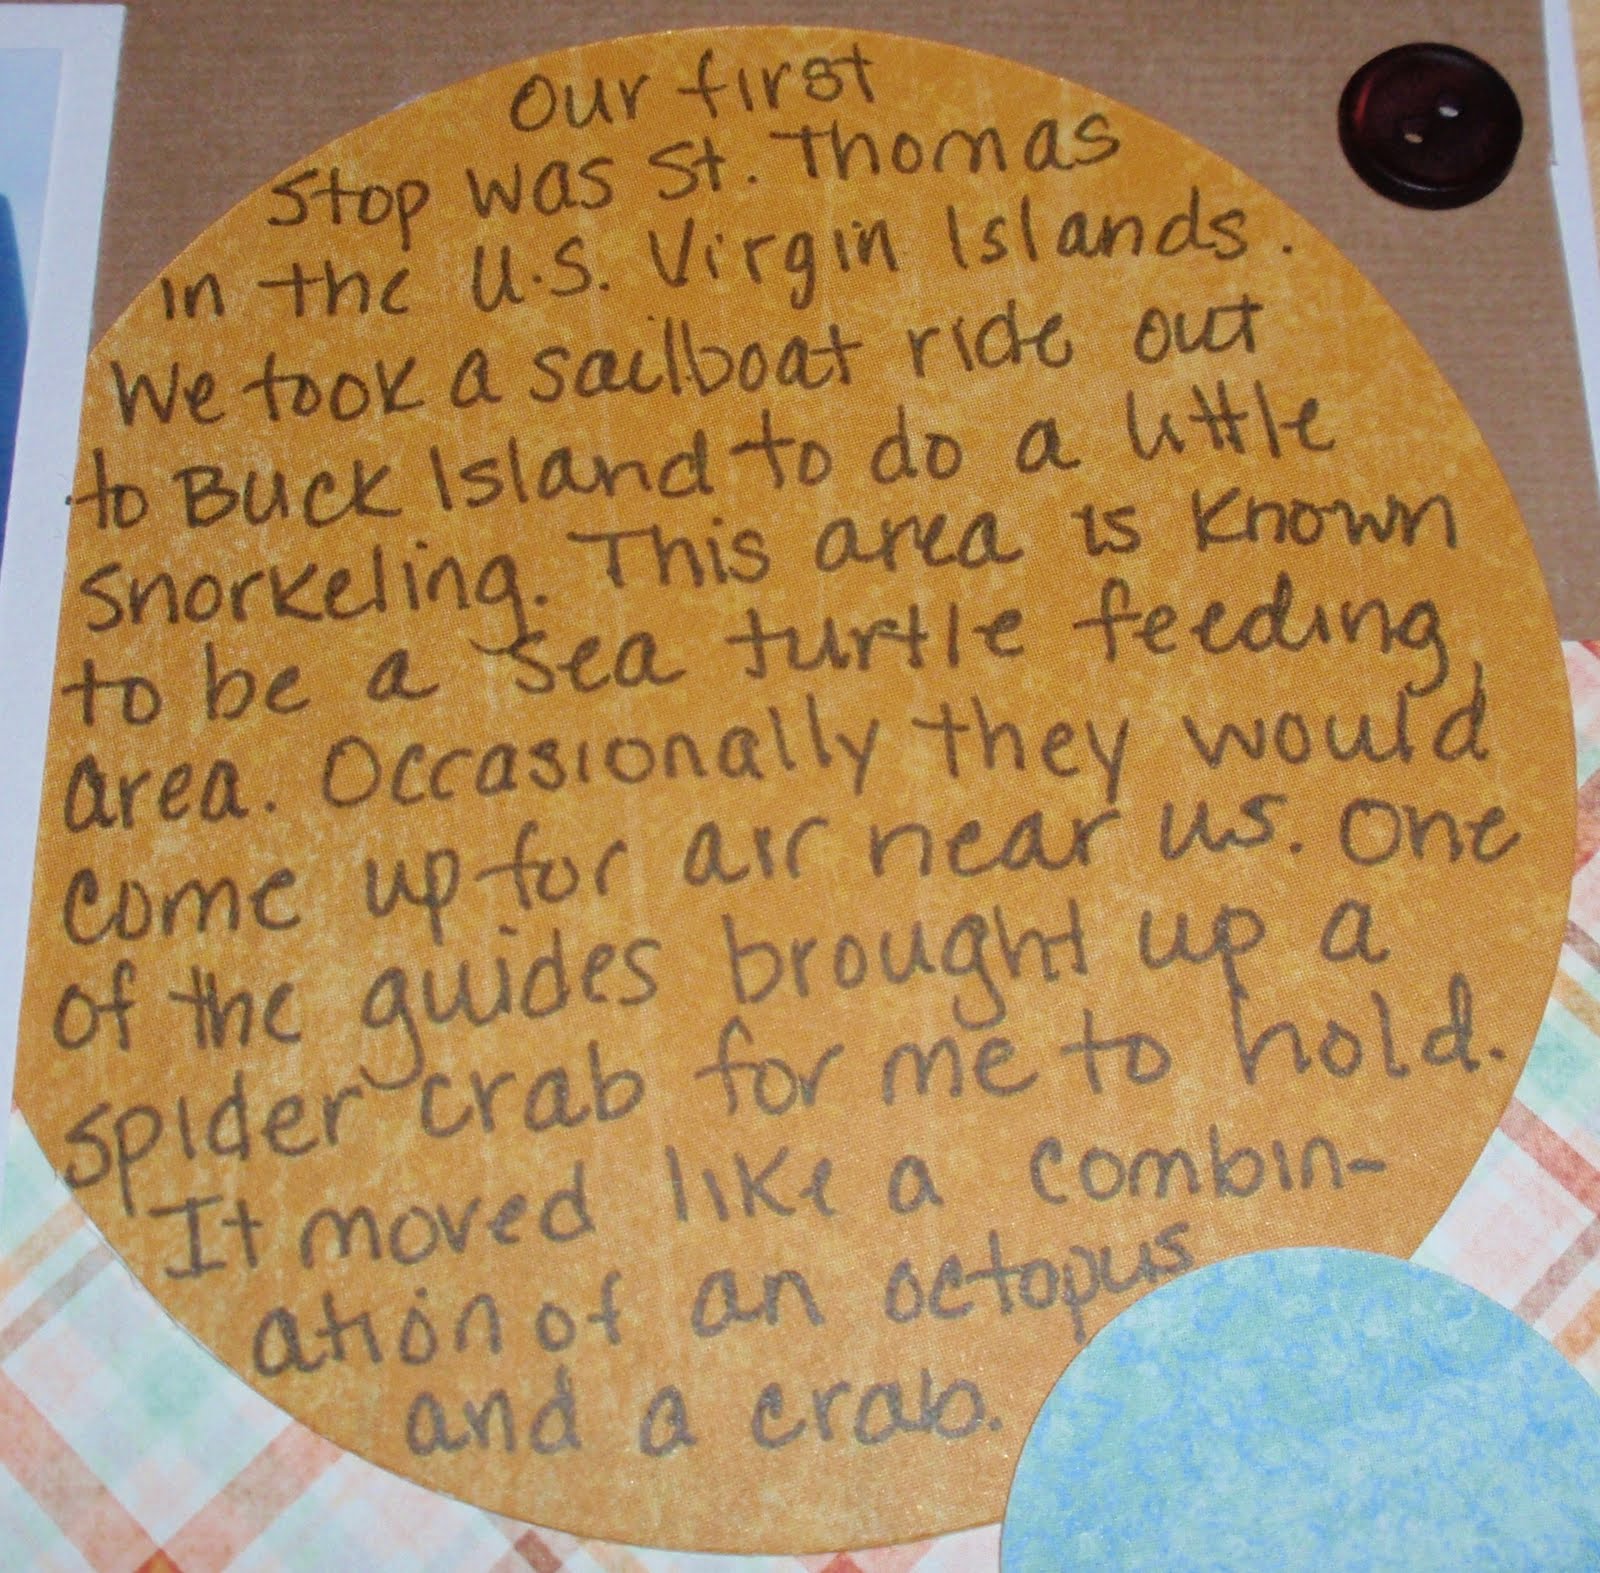 Our first
Stop was St. Thomas
in the U.S. Virgin Islands.
We took a sailboat ride out
to Buck Island to do a little
snorkeling. This area is known
to be a sea turtle feeding
area. Occasionally they would
come up for air near us. One
of the guides brought up a
spider crab for me to hold.
It moved like a combin-
ation of an octopus
and a crab.